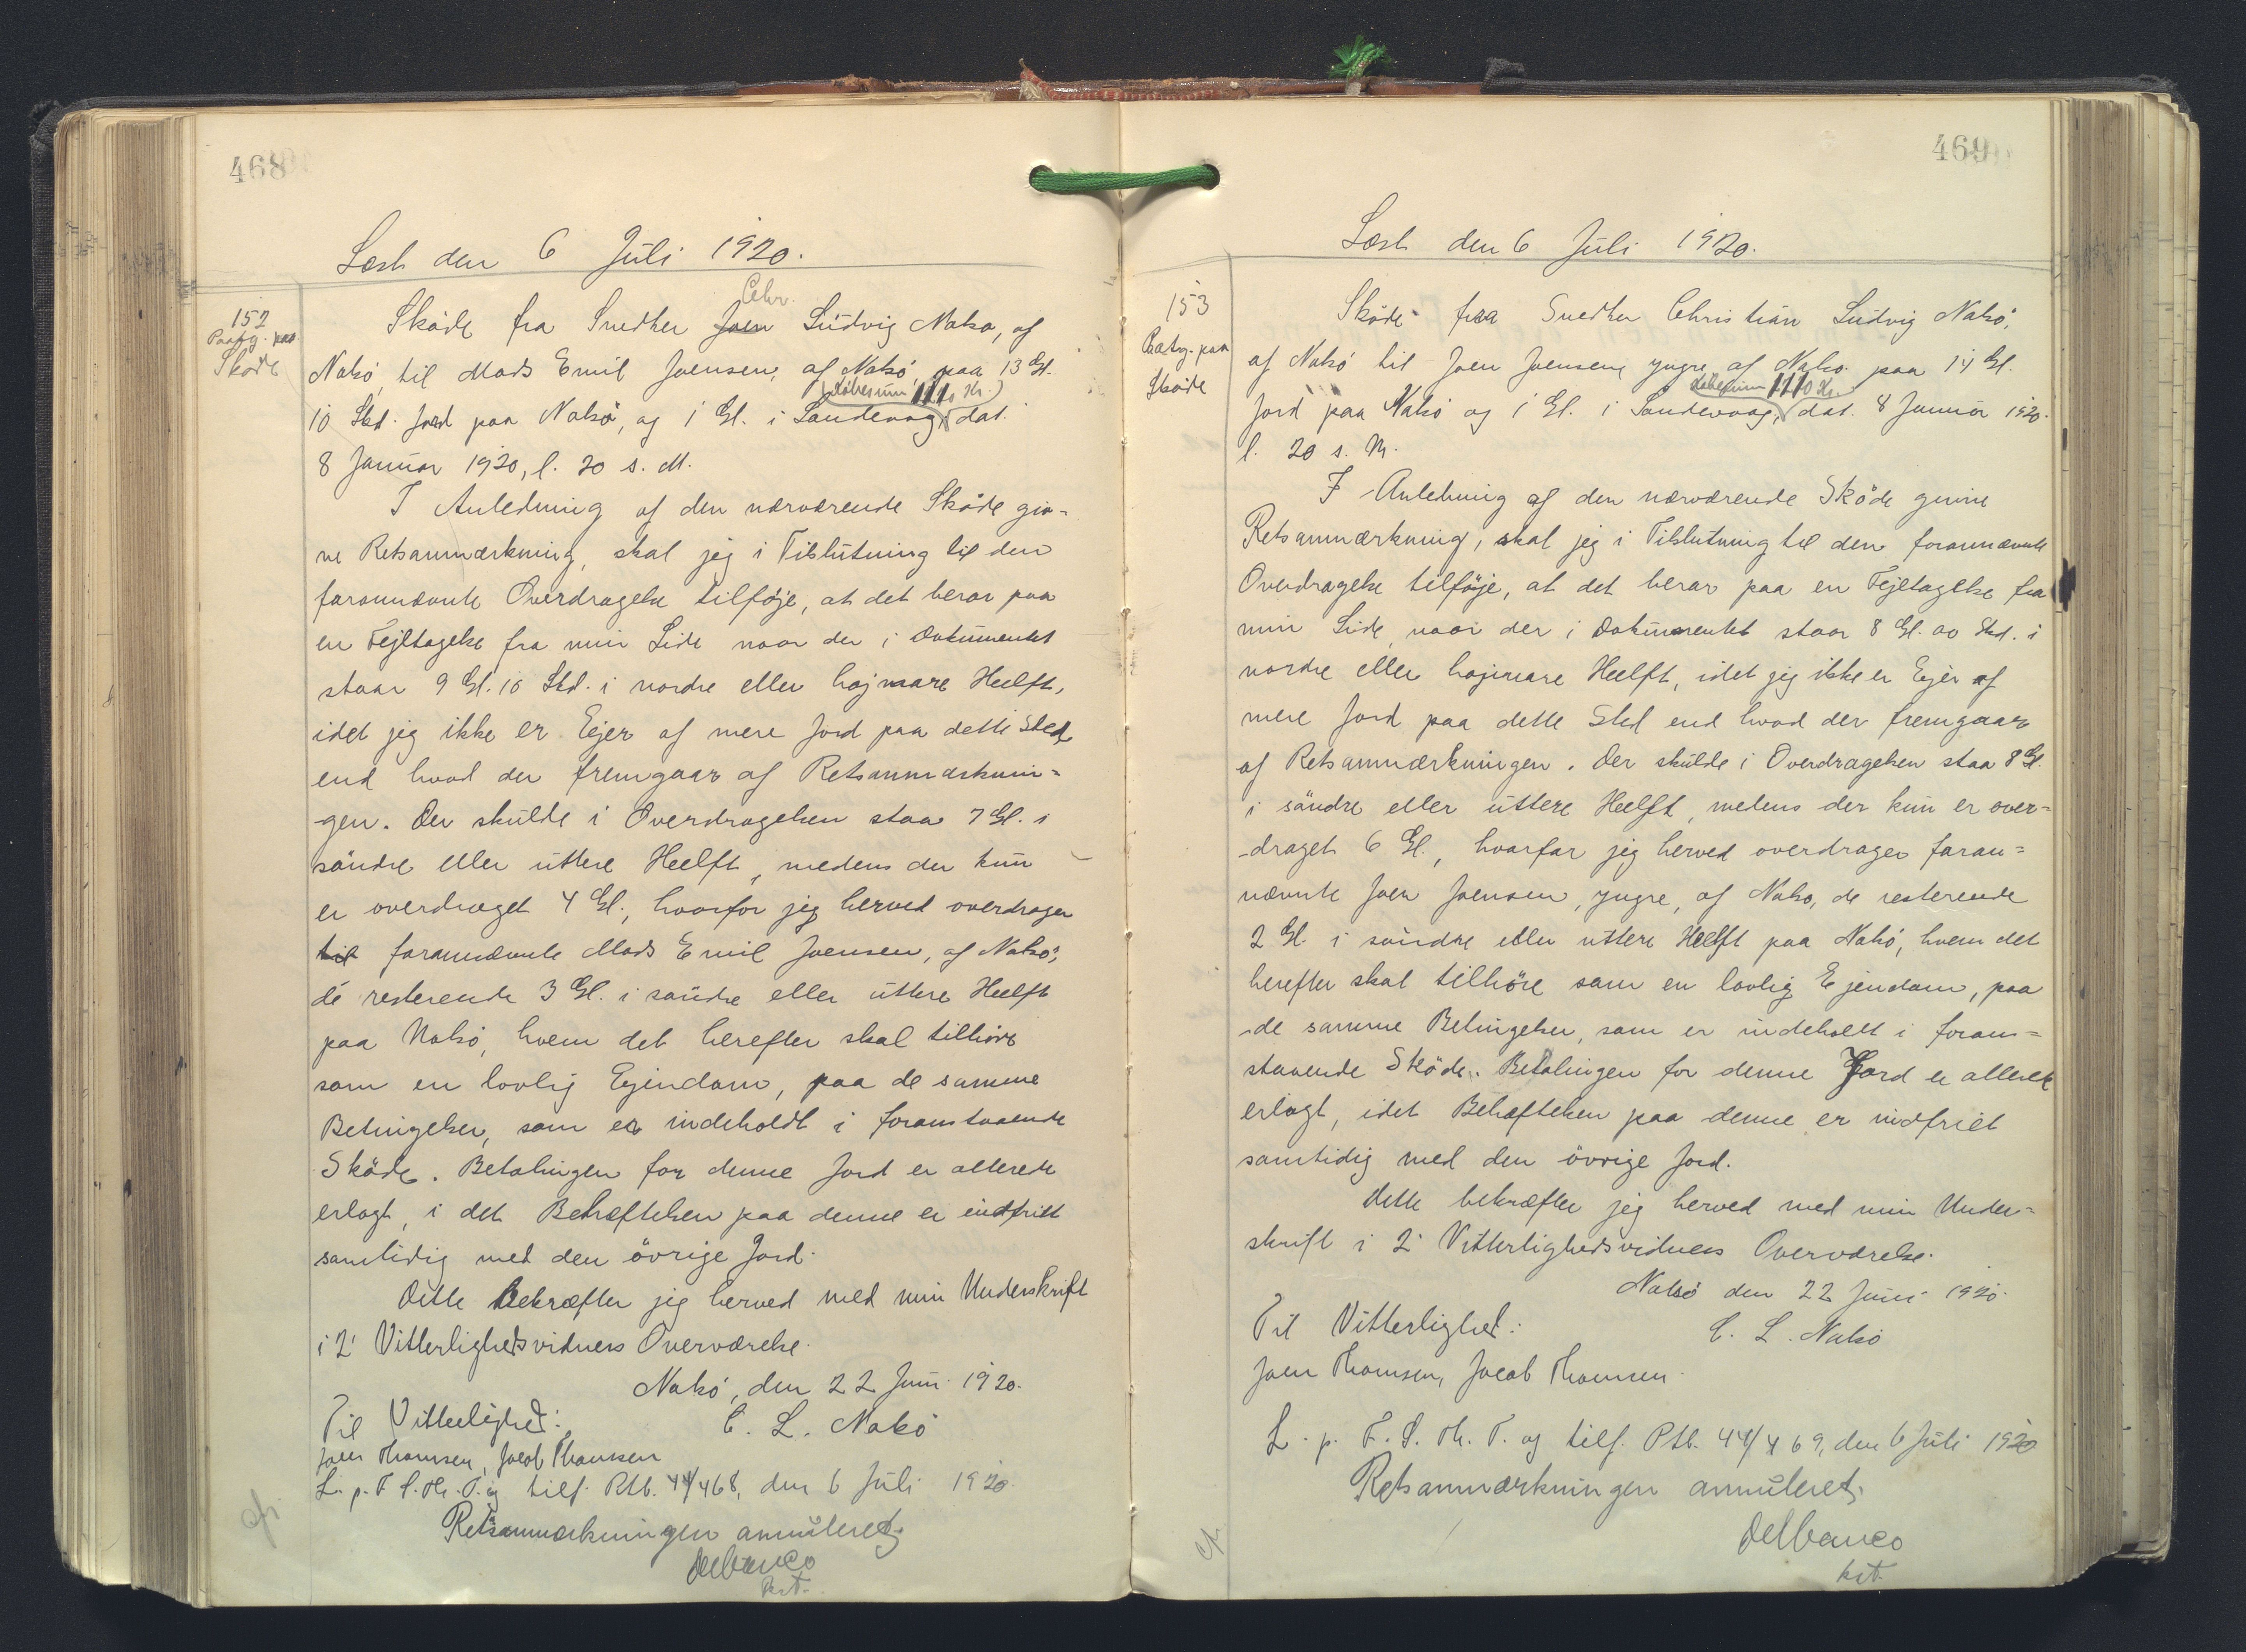 468
Læst den 6 Juli 1920.
152
Paateg. paa
Skøde
Chr.
Skøde fra Snedker Joen Ludvig Nolsø, af
Nolsø, til Mads Emil Joensen, af Nolsø paa 13 Gl.
(Købesum 1110 Kr.)
10 Skd. Jord paa Nolsø, og 1 Gl. i Sandevaag, dat.
8 Januar 1920, l. 20 s. M.
I Anledning af den nærværende Skøde giv-
ne Retsanmærkning, skal jeg i Tilslutning til den
forannævnte Overdragelse tilføje, at det beror paa
en Fejltagelse fra min Side naar der i Dokumentet
staar 9 Gl. 10 Skd. i nordre eller højmare Heelft,
idet jeg ikke er Ejer af mere Jord paa dette Sted,
end hvad der fremgaar af Retsanmærknin-
gen. Der skulde i Overdragelsen staa 7 Gl. i
søndre eller uttere Heelft, medens der kun
er overdraget 4 Gl., hvorfor jeg herved overdrager
til forannævnte Mads Emil Joensen, af Nolsø,
de resterende 3 Gl. i søndre eller uttere Heelft
paa Nolsø, hvem det herefter skal tilhøre
som en lovlig Ejendom, paa de samme
Betingelser, som er indeholdt i foranstaaende
Skøde. Betalingen for denne Jord er allerede
erlagt, i det Behæftelsen paa denne er indfriet
samtidig med den øvrige Jord.
Dette bekræfter jeg herved med min Underskrift
i 2 Vitterlighedsvidners Overværelse.
Nolsø, den 22 Juni 1920.
Til Vitterlighed:
C. L. Nolsø
Joen Thomsen, Jacob Thomsen
L. p. F. S. Th. T. og tilf. Ptb. 44/468, den 6 Juli 1920.
Retsanmærkningen annuleret.
Delbanco
kst.
cfr.
469
Læst den 6 Juli 1920.
153
Paateg. paa
Skøde
Skøde fraa Snedker Christian Ludvig Nolsø,
af Nolsø til Joen Joensen, yngre af Nolsø paa 14 Gl.
Købesum 1110 Kr.
Jord paa Nolsø og 1 Gl. i Sandevaag, dat. 8 Januar 1920.
l. 20 s. M.
I Anledning af den nærværende Skøde givne
Retsanmærkning, skal jeg i Tilslutning til den forannævnte
Overdragelse tilføje, at det beror paa en Fejltagelse fra
min Side, naar der i Dokumentet staar 8 Gl. 00 Skd. i
nordre eller højmare Heelft, idet jeg ikke er Ejer af
mere Jord paa dette Sted end hvad der fremgaar
af Retsanmærkningen. Der skulde i Overdragelsen staa 8 Gl.
i søndre eller uttere Heelft, medens der kun er over-
-draget 6 Gl., hvorfor jeg herved overdrager foran-
nævnte Joen Joensen, yngre, af Nolsø, de resterende
2 Gl. i søndre eller uttere Heelft paa Nolsø, hvem det
herefter skal tilhøre som en lovlig Ejendom, paa
de samme Betingelser, som er indeholdt i foran-
staaende Skøde. Betalingen for denne Jord er allerede
erlagt, idet Behæftelsen paa denne er indfriet
samtidig med den øvrige Jord.
Dette bekræfter jeg herved med min Under-
skrift i 2 Vitterlighedsvidners Overværelse.
Nolsø den 22 Juni 1920.
Til Vitterlighed:
C. L. Nolsø
Joen Thomsen, Jacob Thomsen.
L. p. F. S. Th. T. og tilf. Ptb. 44/469, den 6 Juli 1920
Retsanmærkningen annuleret.
Delbanco
kst.
cfr.